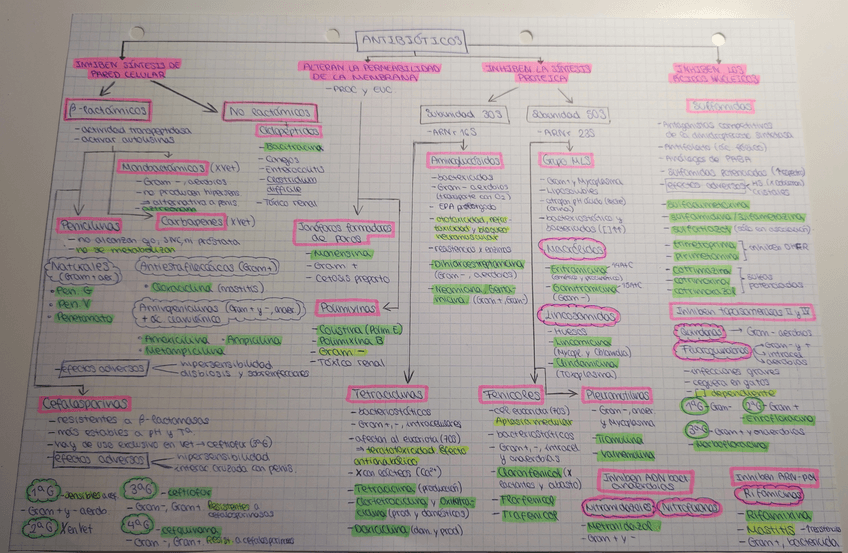 ANTIBIÓTICOS
INHIBEN SÍNTESIS DE
PARED CELULAR
β-lactámicos
- actividad transpeptidasa
- activar autolisinas
No lactámicos
Ciclopéptidos
Bacitracina
- Conejos
- Enterococcus
- Clostridium
difficile
- Tóxico renal
Monobactámicos (X vet)
- Gram -, aerobios
- no producen hipersens
→ alternativa a penis
- aztreonam
Carbapenes (X vet)
Penicilinas
- no alcanzan ojo, SNC, ni próstata
- no se metabolizan
Naturales
(Gram + aer)
Pen. G
Pen. V
Penetamato
Antiestafilocócicas (Gram +)
- Cloxacilina (mastitis)
Aminopenicilinas (Gram + y -, anaer)
+ ác clavulánico
- Amoxicilina - Ampicilina
- Metampicilina
- efectos adversos
hipersensibilidad
disbiosis y sobreinfecciones
Cefalosporinas
- resistentes a β-lactamasas
- más estables a pH y Tª
- hay de uso exclusivo en vet → ceftiofur (3ªG)
- efectos adversos
hipersensibilidad
interac cruzada con penis.
1ªG
- Gram + y - aerob.
2ªG X en vet
3ªG - ceftiofur
- Gram -, Gram + Resistentes a
cefalosporinasas
4ªG - cefquinoma
- Gram -, Gram + Resist. a cefalosporinas
ALTERAN LA PERMEABILIDAD
DE LA MEMBRANA
- PROC y EUC
Ionóforos formadores
de poros
- Monensina
- Gram +
- Cetosis preparto
Polimixinas
- Colistina (Polim E)
- Polimixina B
- Gram -
- Tóxico renal
INHIBEN LA SÍNTESIS
PROTEICA
Subunidad 30S
- ARNr 16S
Aminoglucósidos
- bactericidas
- Gram - aerobios
(transporte con O2)
- EPA prolongado
- ototoxicidad, nefro-
toxicidad y bloqueo
neuromuscular
- Dihidroestreptomicina
(Gram -, aerobios)
- Neomicina, Genta-
micina (Gram +, Gram)
Tetraciclinas
- bacteriostáticos
- Gram +, -, intracelulares
- afectan al eucariota (70S)
→ hepatotoxicidad Efecto
antianabólico
- X con lácteos (Ca2+)
- Tetraciclina (producción)
- Clortetraciclina y Oxitetra-
ciclina (prod y domésticos)
- Doxiciclina (dom. y prod)
Subunidad 50S
- ARNr 23S
Grupo MLS
- Gram + y Mycoplasma
- Liposolubles
- bacteriostáticos y
bactericidas ([]↑↑)
Macrólidos
- Eritromicina
- Gamitromicina
(Gram -)
Lincosamidas
- Huesos
- Lincomicina
- Clindamicina
(Toxoplasma)
Fenicoles
- cél eucariota (70S)
Aplasia medular
- bacteriostáticos
- Gram +, -, intracel
y anaerobios
- Cloranfenicol (X
lactantes y abasto)
- Florfenicol
Pleuromutilinas
- Gram -, anaer
y Mycoplasma
- Tiamulina
- Valnemulina
INHIBEN LOS
ÁCIDOS NUCLEICOS
Sulfamidas
- Antagonistas competitivos
de la dihidropteroato sintetasa
- Antifolato (ác. fólico)
- Análogos de PABA
- sulfamidas potenciadas
- efectos adversos
- sulfadimetoxina
- trimetoprima
- pirimetamina
inhiben DHFR
sulfas
potenciadas
Inhiben topoisomerasas II y IV
Quinolonas → Gram - aerobios
Fluoroquinolonas → Gram - y +
intracel
aerobios
- infecciones graves
- ceguera en gatos
- [] dependiente
1ªG Gram -
2ªG Gram +
Enrofloxacina
3ªG - Gram + y anaerobios
Inhiben ADN bact
anaerobias
Nitroimidazoles
Nitrofuranos
- Metronidazol
- Gram + y -
Inhiben ARN-pol
Rifamicinas
- Rifaximina
- Mastitis
- Gram +, bactericida